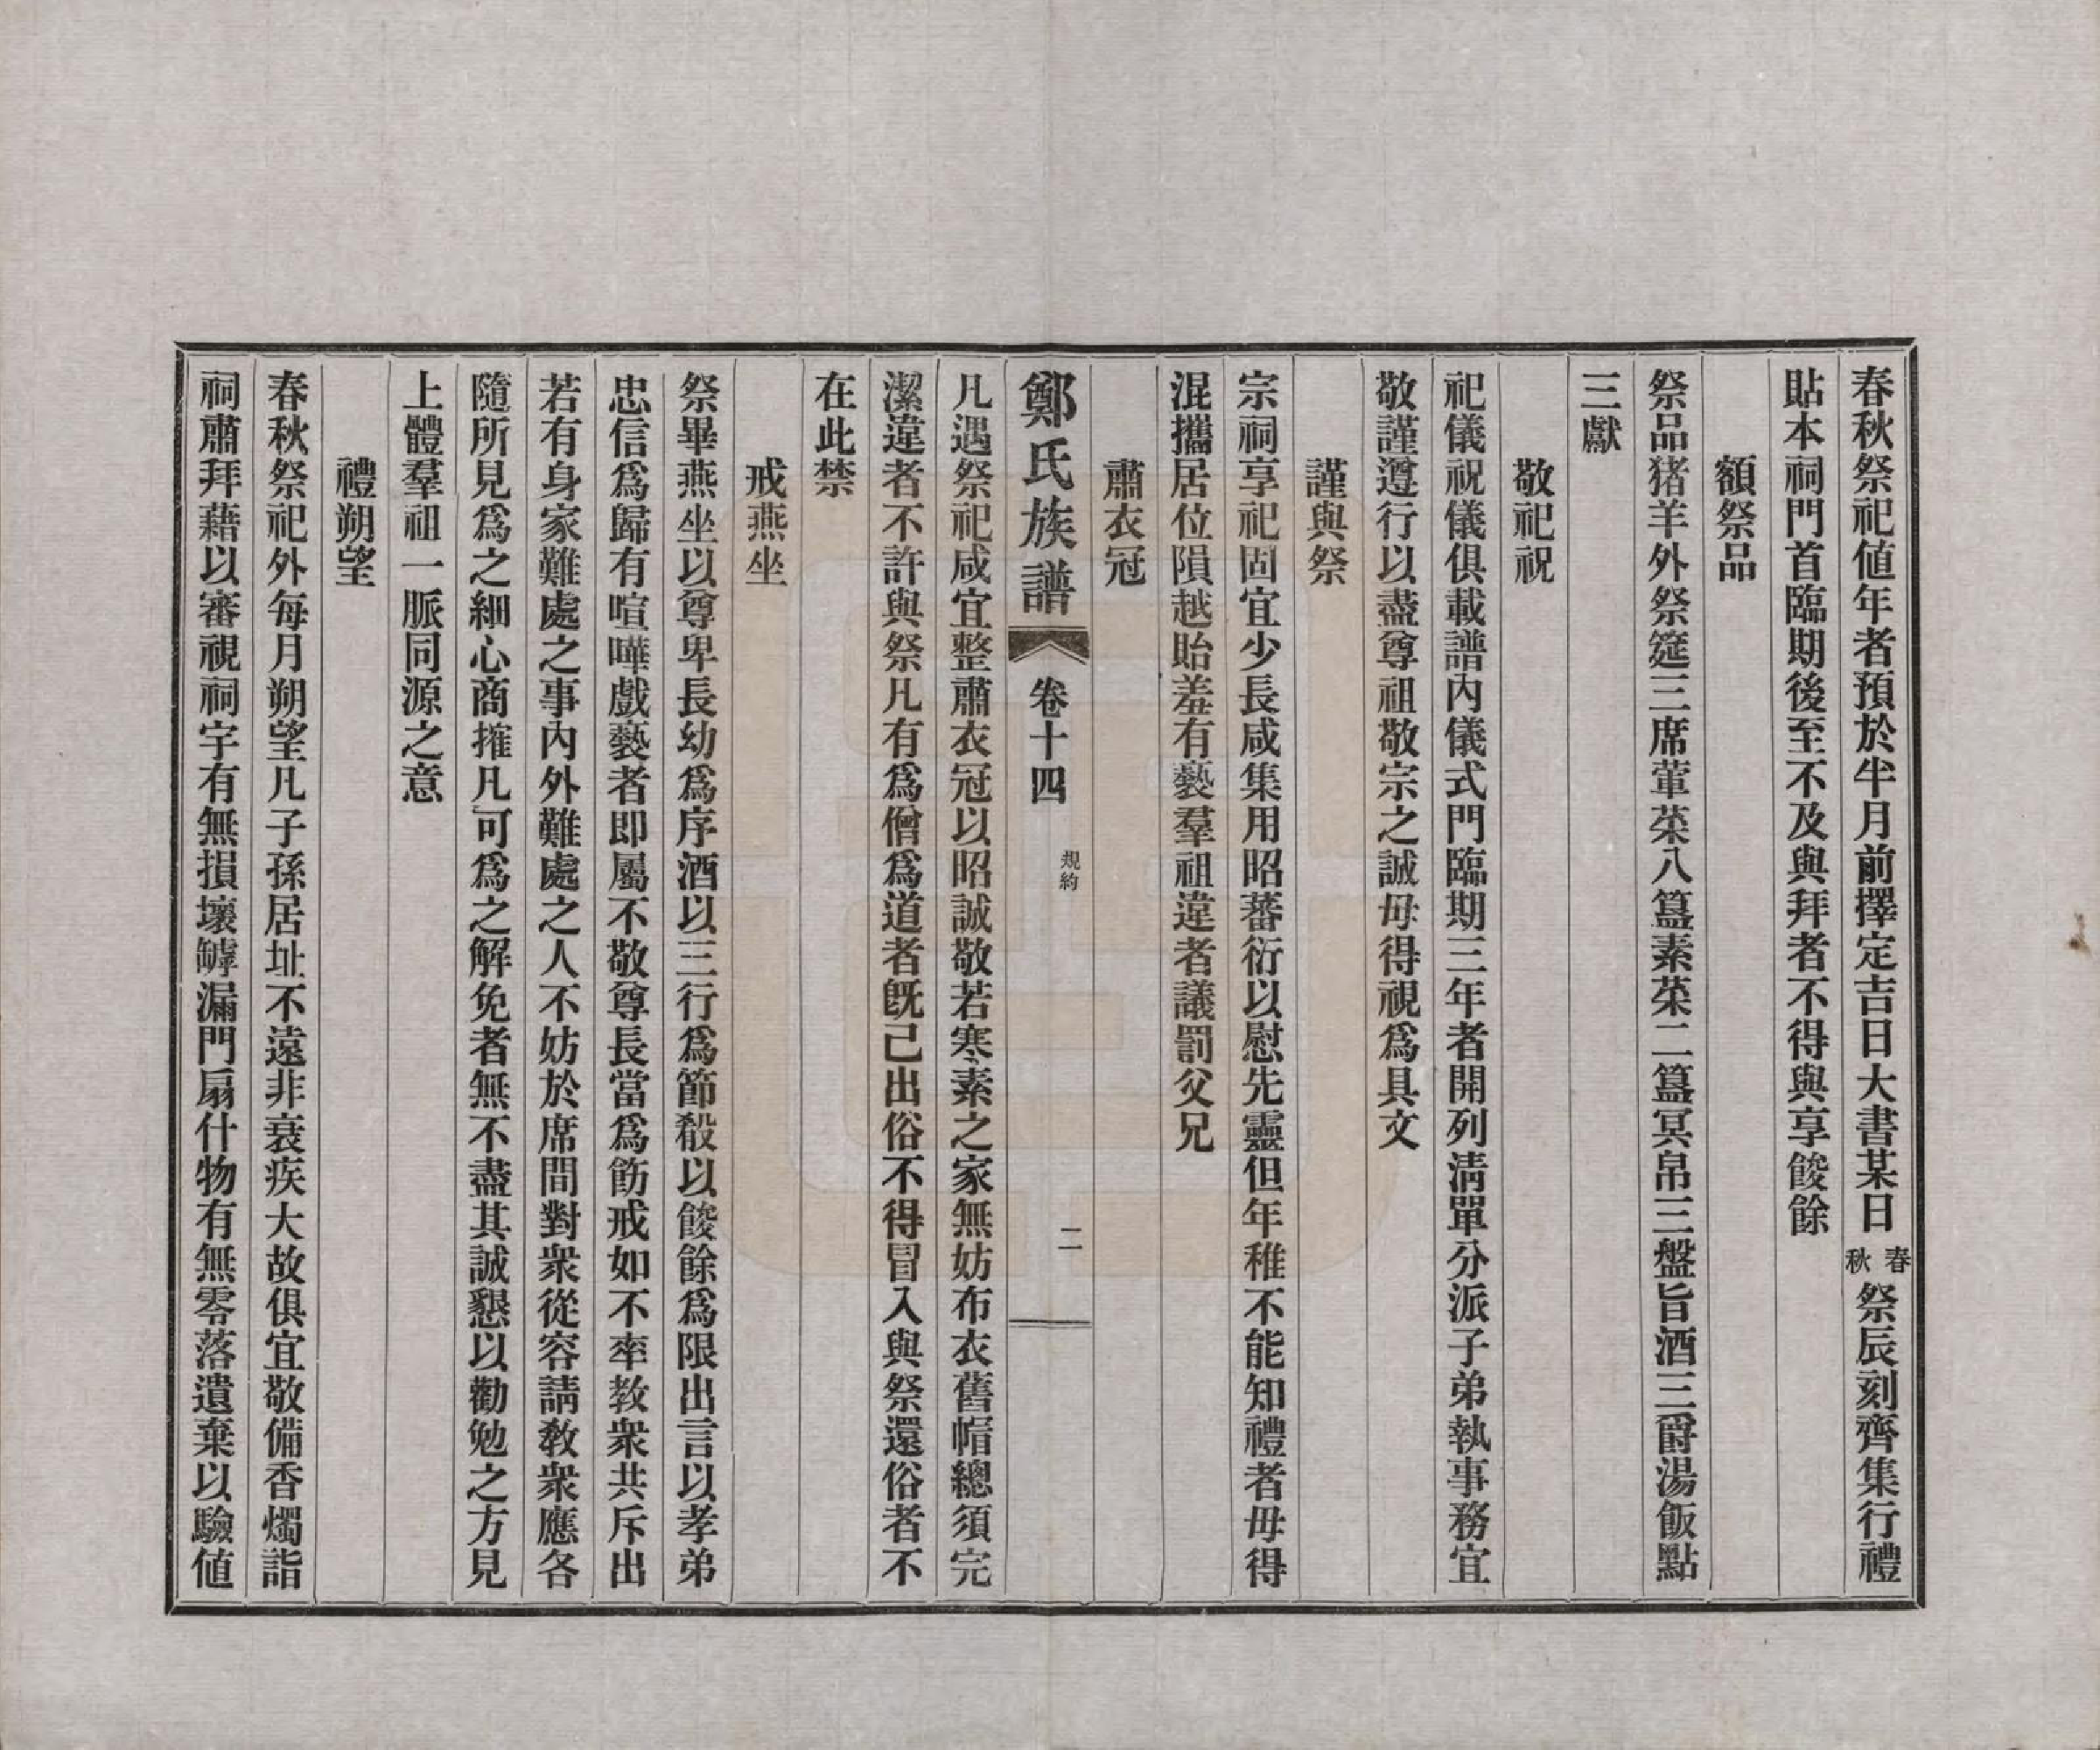 春秋祭祀値年者預於半月前擇定吉日大書某日春秋祭辰刻齊集行禮
貼本祠門首臨期後至不及與拜者不得與享餕餘
額祭品
祭品猪羊外祭筵三席葷菜八簋素菜二簋冥帛三盤旨酒三爵湯飯點
三獻
敬祀祝
祀儀祝儀俱載譜内儀式門臨期三年者開列淸單分派子弟執事務宜
敬謹遵行以盡尊祖敬宗之誠毋得視爲具文
謹與祭
宗祠享祀固宜少長咸集用昭蕃衍以慰先靈但年稚不能知禮者毋得
混攜居位隕越貽羞有褻羣祖違者議罰父兄
肅衣冠
鄭氏族譜 卷十四 規約 二
凡遇祭祀咸宜整肅衣冠以昭誠敬若寒素之家無妨布衣舊帽總須完
潔違者不許與祭凡有爲僧爲道者既己出俗不得冒入與祭還俗者不
在此禁
戒燕坐
祭畢燕坐以尊卑長幼爲序酒以三行爲節殽以餕餘爲限出言以孝弟
忠信爲歸有喧嘩戲褻者即屬不敬尊長當爲飭戒如不率敎衆共斥出
若有身家難處之事内外難處之人不妨於席間對衆從容請敎衆應各
隨所見爲之細心商搉凡可爲之解免者無不盡其誠懇以勸勉之方見
上體羣祖一脈同源之意
禮朔望
春秋祭祀外每月朔望凡子孫居址不遠非衰疾大故俱宜敬備香燭詣
祠肅拜藉以審視祠宇有無損壞罅漏門扇什物有無零落遺棄以驗値